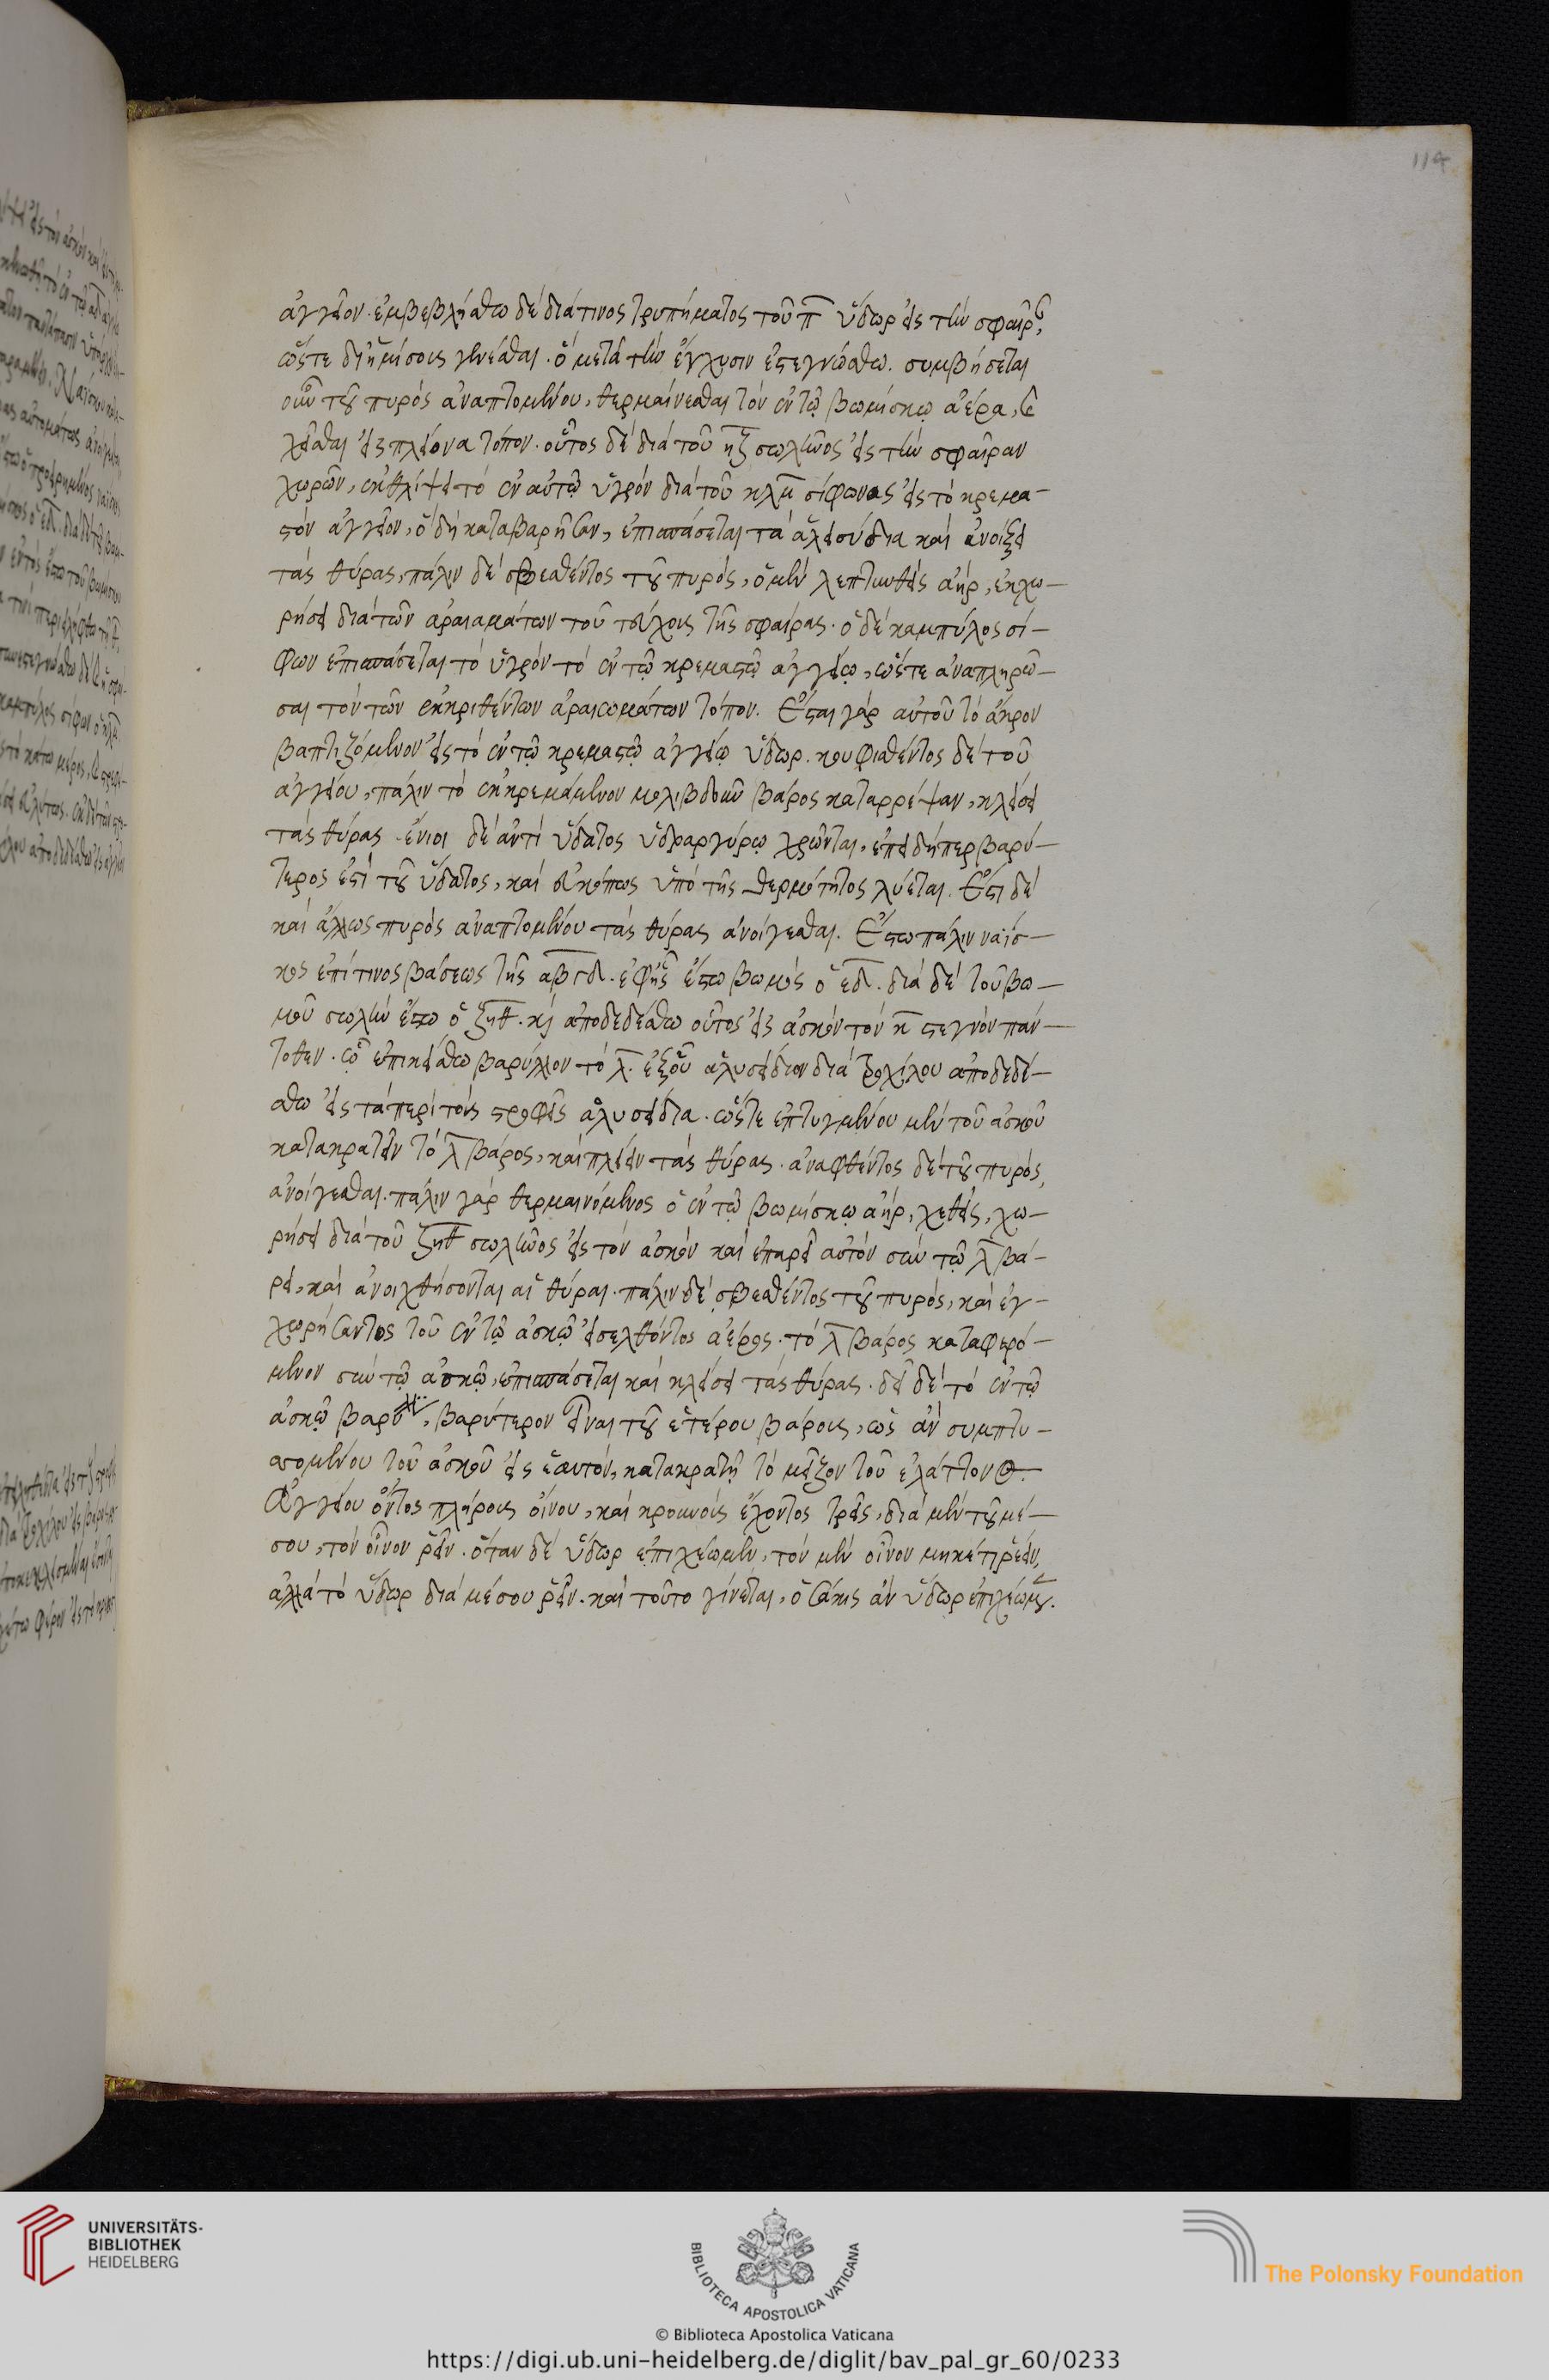 114
ἀγγεῖον. ἐμβεβλήσθω δὲ διά τινος τρυπήματος τοῦ π ὕδωρ εἰς τὴν σφαῖρ,
ὥστε δι' ἡμίσους γενέσθαι. ὃ μετὰ τὴν ἔγχυσιν ἐστεγνώσθω. συμβήσεται
οὖν τοῦ πυρὸς ἀναπτομένου, θερμαίνεσθαι τὸν ἐν τῷ βωμίσκῳ ἀέρα, καὶ
χεῖσθαι εἰς πλείονα τόπον. οὗτος δὲ διὰ τοῦ ηξ σωλῆνος εἰς τὴν σφαῖραν
χωρῶν, ἐκθλίψει τὸ ἐν αὐτῷ ὑγρὸν διὰ τοῦ κλμ σίφωνος εἰς τὸ κρεμα-
στὸν ἀγγεῖον, ὃ δὴ καταβαρῆσαν, ἐπισπάσεται τὰ ἁλεσύδια καὶ ἀνοίξει
τὰς θύρας, πάλιν δὲ σβεσθέντος τοῦ πυρὸς, ὁ μὲν λεπτυνθεὶς ἀὴρ, ἐκχω-
ρήσει διὰ τῶν ἀραιαμάτων τοῦ τεύχους τῆς σφαίρας. ὁ δὲ καμπύλος σί-
φων ἐπισπάσεται τὸ ὑγρὸν τὸ ἐν τῷ κρεμαστῷ ἀγγείῳ, ὥστε ἀναπληρῶ-
σαι τὸν τῶν ἐκκριθέντων ἀραιωμάτων τόπον. Ἔσται γὰρ αὐτοῦ τὸ ἄκρον
βαπτιζόμενον εἰς τὸ ἐν τῷ κρεμαστῷ ἀγγείῳ ὕδωρ. κουφισθέντος δὲ τοῦ
ἀγγείου, πάλιν τὸ ἐκκρεμάμενον μολιβδοῦν βάρος καταρρέψαν, κλείσει
τὰς θύρας. ἔνιοι δὲ ἀντὶ ὕδατος ὑδραργύρῳ χρῶνται, ἐπειδήπερ βαρύ-
τερός ἐστι τοῦ ὕδατος, καὶ εὐκόπως ὑπὸ τῆς θερμότητος λύεται. Ἔστι δὲ
καὶ ἄλλως πυρὸς ἀναπτομένου τὰς θύρας ἀνοίγεσθαι. Ἔστω πάλιν ναΐσ-
κος ἐπί τινος βάσεως τῆς αβγδ. ἐφ' ἧς ἔστω βωμὸς ὁ εδ. διὰ δὲ τοῦ βω-
μοῦ σωλὴν ἔστω ὁ ζηθ. κὶ ἀποδεδέσθω οὗτος εἰς ἀσκὸν τὸν κ στεγνὸν πάν-
τοθεν. ᾧ ἐπικείσθω βαρύλλιον τὸ λ. ἐξ οὗ ἁλυσείδιον διὰ τροχίλου ἀποδεδέ-
σθω εἰς τὰ περὶ τοὺς στροφεῖς ἁλυσείδια. ὥστε ἐπτυγμένου μὲν τοῦ ἀσκοῦ
κατακρατεῖν τὸ λ βάρος, καὶ πλείειν τὰς θύρας. ἀναφθέντος δὲ τοῦ πυρὸς,
ἀνοίγεσθαι. πάλιν γὰρ θερμαινόμενος ὁ ἐν τῷ βωμίσκῳ ἀὴρ, χεθεὶς, χω-
ρήσει διὰ τοῦ ζηθ σωλῆνος εἰς τὸν ἀσκὸν καὶ ἐπαρεῖ αὐτὸν σὺν τῷ λ βά-
ρει, καὶ ἀνοιχθήσονται αἱ θύραι. πάλιν δὲ σβεσθέντος τοῦ πυρὸς, καὶ ἐγ-
χωρήσαντος τοῦ ἐν τῷ ἀσκῷ εἰσελθόντος ἀέρος. τὸ λ βάρος καταφερό-
μενον σὺν τῷ ἀσκῷ, ἐπισπάσεται καὶ κλείσει τὰς θύρας. δεῖ δὲ τὸ ἐν τῷ
ἀσκῷ βαρύλλ, βαρύτερον εἶναι τοῦ ἑτέρου βάρους, ὡς ἂν συμπτυ-
σσομένου τοῦ ἀσκοῦ εἰς ἑαυτὸν, κατακρατῇ τὸ μεῖζον τοῦ ἐλάττονος.
Ἀγγείου ὄντος πλήρους οἴνου, καὶ κρουνοὺς ἔχοντος τρεῖς, διὰ μὲν τοῦ μέ-
σου, τὸν οἶνον ῥεῖν. ὅταν δὲ ὕδωρ ἐπιχέωμεν, τὸν μὲν οἶνον μηκέτι ῥέειν,
ἀλλὰ τὸ ὕδωρ διὰ μέσου ῥεῖν. καὶ τοῦτο γίνεται, ὁσάκις ἂν ὕδωρ ἐπιχέωμεν.
UNIVERSITÄTS-
BIBLIOTHEK
HEIDELBERG
BIBLIOTECA APOSTOLICA VATICANA
The Polonsky Foundation
© Biblioteca Apostolica Vaticana
https://digi.ub.uni-heidelberg.de/diglit/bav_pal_gr_60/0233